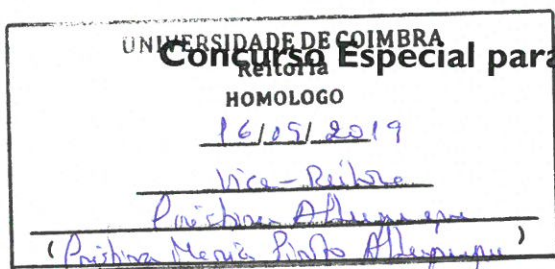 UNIVERSIDADE DE COIMBRA
Concurso Especial para
Reitoria
HOMOLOGO
16/05/2019
Vice-Reitora
Cristina Albuquerque
(Cristina Maria Pinto Albuquerque)